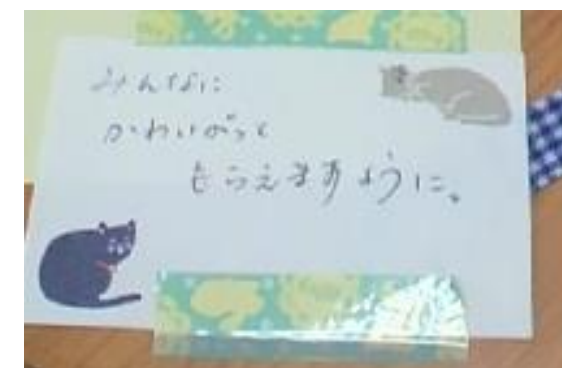 みんなに
かわいがって
もらえますように。